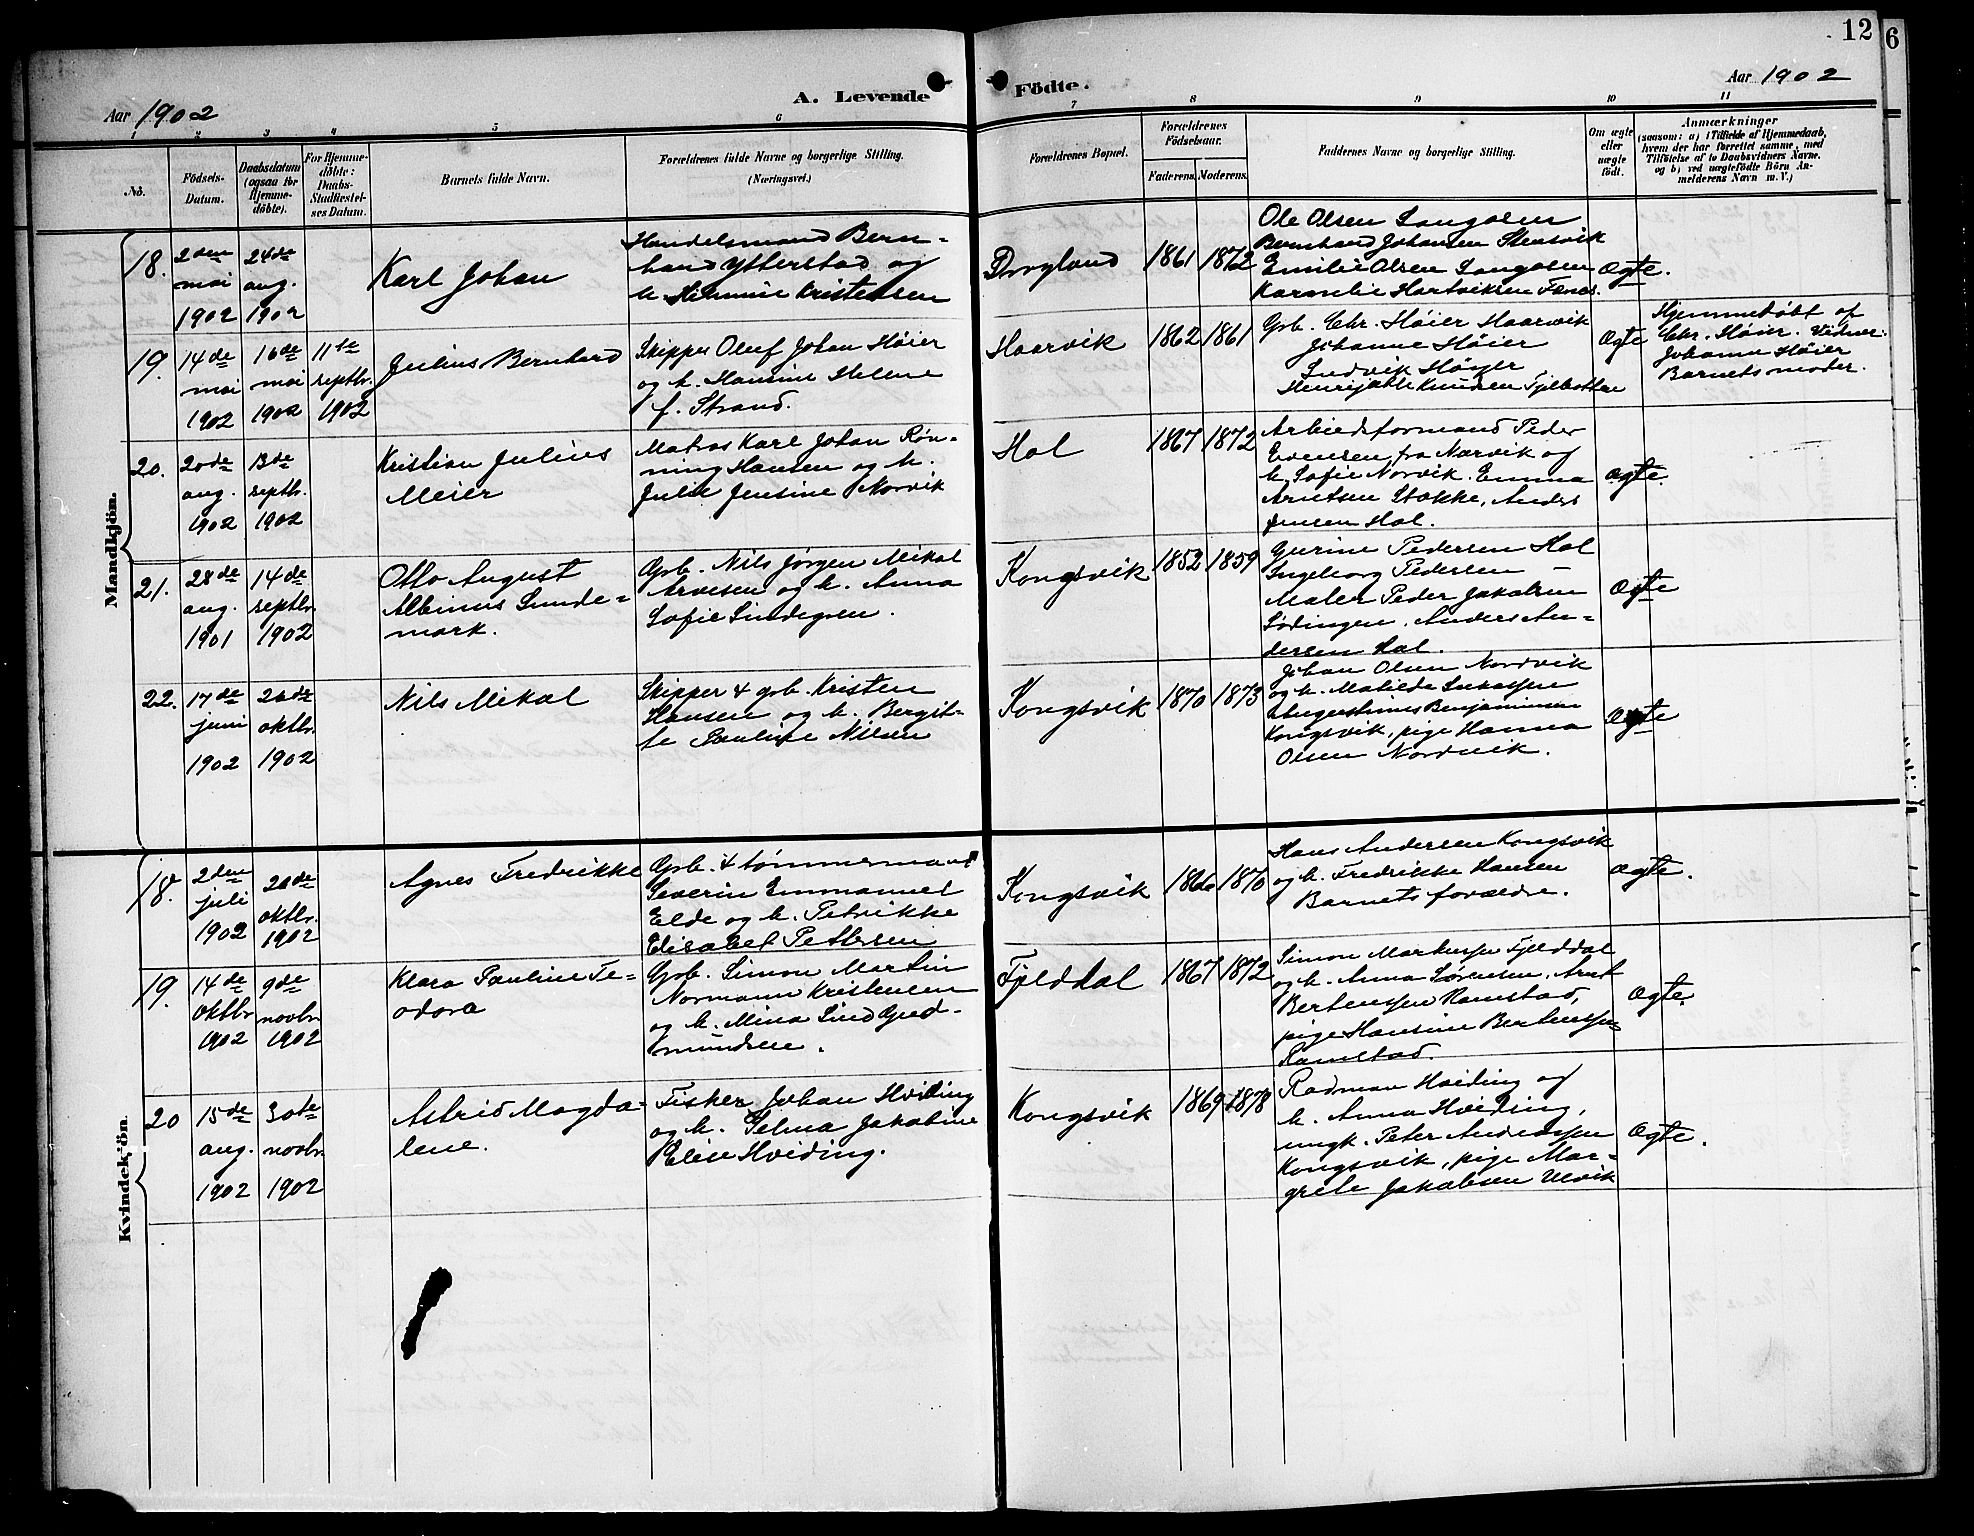 12
6
Aar 1902
A. Levende
Födte.
Aar 1902
1 2 3 4 5 6 7 8 9 10 11
No.
Födsels-
Datum.
Daabsdatum
(ogsaa for
Hjemme-
döbte).
For Hjemme-
döbte:
Daabs-
Stadfæstel-
ses Datum.
Barnets fulde Navn.
Forældrenes fulde Navne og borgerlige Stilling.
(Næringsvei.)
Forældrenes Bopæl.
Forældrenes
Födselsaar.
Faderens.
Moderens.
Faddernes Navne og borgerlige Stilling.
Om ægte
eller
uægte
födt.
Anmærkninger
(saasom: a) i Tilfælde af Hjemmedaab,
hvem der har forrettet samme, med
Tilföielse af to Daabsvidners Navne.
og b) ved uægtefödte Börn An-
melderens Navn m. V.)
Mandkjön.
18.
2den
mai
1902
24de
aug.
1902
Karl Johan
Handelsmand Bern-
hard Ytterstad og
h. Hilmine Kristensen
1861
1872
Ole Olsen Langaasen
Bernhard Johansen Stensvik
Emilie Olsen Langaasen
Kornelie Hartviksen Fænes.
ægte.
19.
14de
mai
1902
16de
mai
1902
11te
septbr.
1902
Julius Bernhard
Skipper Oluf Johan Høier
og h. Hansine Helene
f. Strand.
Haarvik
1862
1861
Grb. Chr. Høier Haarvik
Johanne Høier
Ludvik Høyer
Henrijette Knudsen Fjelbotten
ægte
Hjemmedøbt af
Chr. Høier. Vidner:
Johanna Høier
Barnets moder.
20.
20de
aug.
1902
13de
septbr.
1902
Kristian Julius
Meier
Matros Karl Johan Røn-
ning Hansen og h.
Julie Jensine Norvik
Hol
1867
1872
Arbeidsformand Peder
Evensen fra Narvik og
h. Sofie Norvik. Emma
Arntsen Stokke, Anders
Jensen Hol.
ægte.
21.
28de
aug.
1901
14de
septbr.
1902
Otto August
Albinus Lunde-
mark.
Grb. Nils Jørgen Mikal
Arvesen og h. Anna
Sofie Lindegren.
Kongsvik
1852
1859
Gurine Pedersen Hol
Ingeborg Pedersen —
Maler Peder Jakobsen
Lødingen. Anders An-
dersen Hol.
ægte
22.
17de
juni
1902
26de
oktbr.
1902
Nils Mikal
Skipper & grb. Kristen
Hansen og h. Bergit-
te Pauline Nilsen
Kongsvik
1870
1873
Johan Olsen Nordvik
og h. Matilde Lukassen
Augustinus Benjaminsen
Kongsvik, pige Hanna
Olsen Nordvik.
ægte
Kvindekjön.
18.
2den
juli
1902
26de
oktbr.
1902
Agnes Fredrikke
Grb. & tømmermand
Severin Emmanuel
Elde og h. Petrikke
Elisabet Pettersen
Kongsvik
1866
1870
Hans Andersen Kongsvik
og h. Fredrikke Hansen
Barnets forældre.
ægte.
19.
14de
oktbr.
1902
9de
novbr.
1902
Klara Pauline Te-
odora
Grb. Simon Martin
Normann Kristensen
og h. Mina Lind Gud-
mundsen.
Fjelddal
1867
1872
Simon Markussen Fjelddal
og h. Anna Sørensen, Arnt
Berteussen Ramstad,
pige Hansine Berteussen
Ramstad.
ægte.
20
15de
aug.
1902
30te
novbr.
1902
Astrid Magda-
lene.
Fisker Johan Hveding
og h. Selma Jakobine
Elise Hveding.
Kongsvik
1869
1878
Radman Hveding og
h. Anna Hveding,
ungk. Peter Andreassen
Kongsvik, pige Mar-
grete Jakobsen Ulvik
ægte.